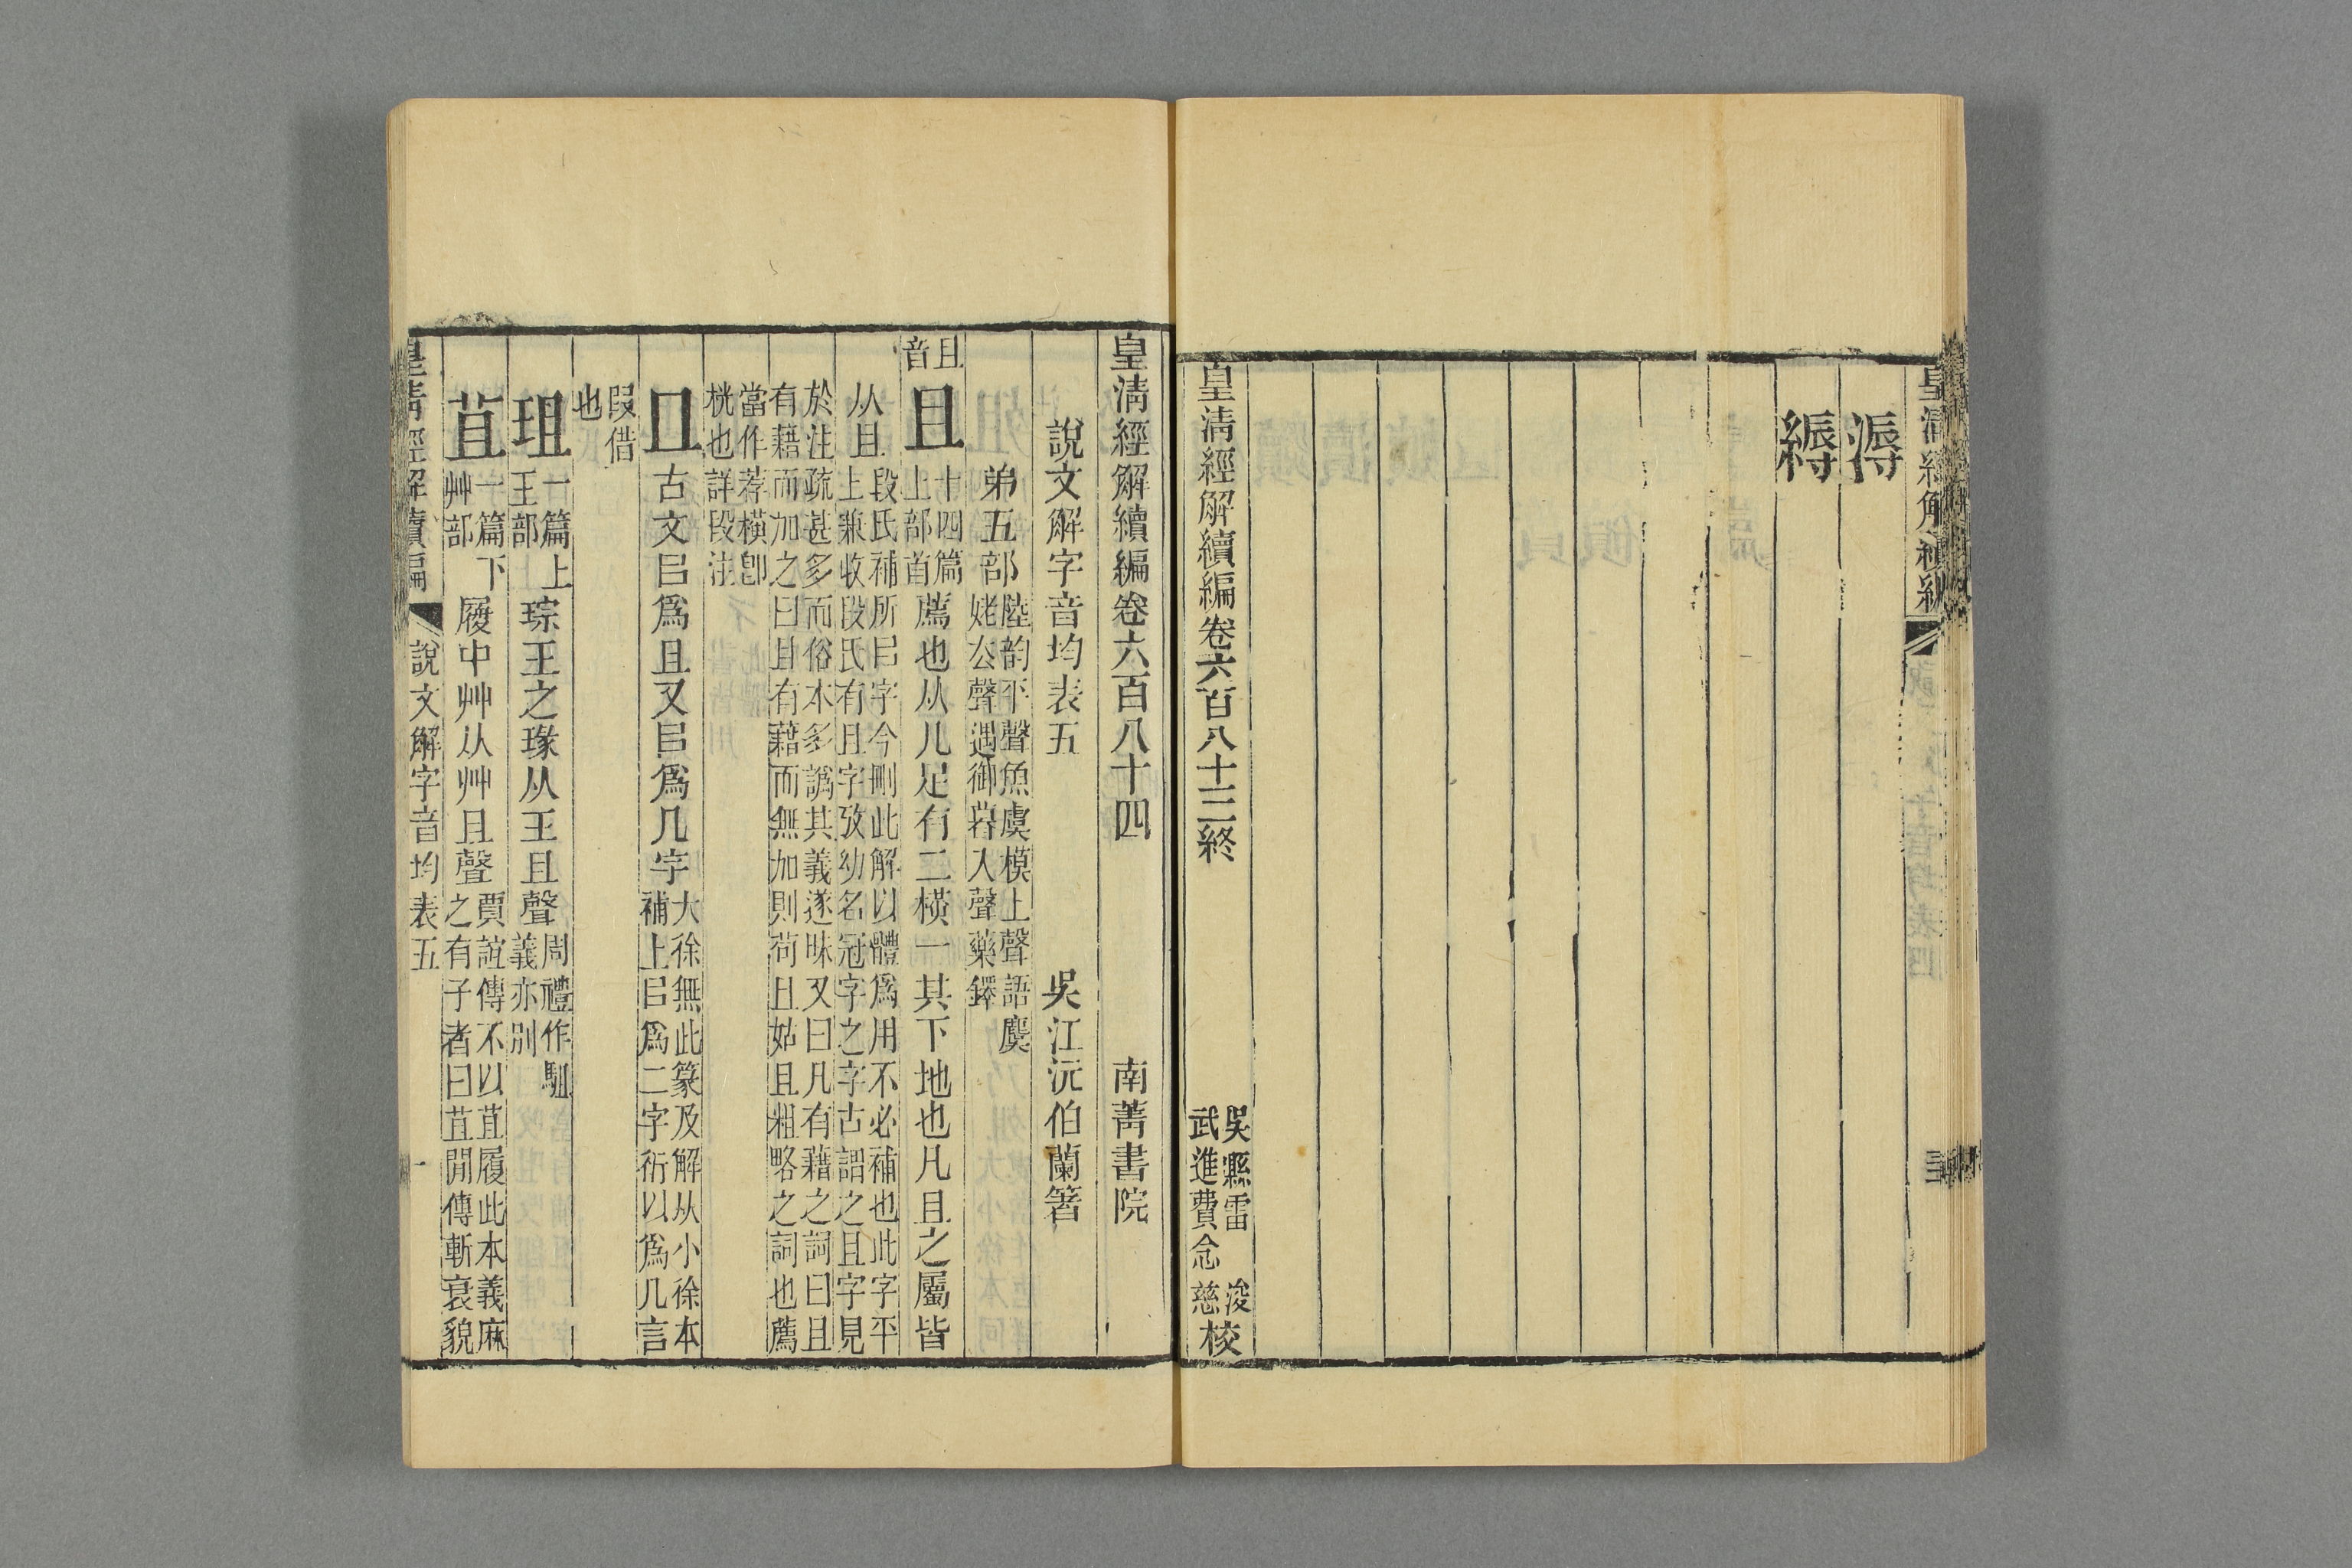 皇清經解續編
溽
縟
皇清經解續編卷六百八十三終
吳縣雷浚
武進費念慈校
皇清經解續編卷六百八十四
南菁書院
說文解字音均表五
吳江沅伯蘭箸
弟五部
陸韵平聲魚虞模上聲語麌
姥去聲遇御暮入聲藥鐸
且音
且
十四篇
上部首
薦也从几足有二橫一其下地也凡且之屬皆
从且
段氏補所㠯字今刪此解以體爲用不必補也此字平
上兼收段氏有且字攷幼名冠字之字古謂之且字見
於注疏甚多而俗本多譌其義遂昧又曰凡有藉之詞曰且
有藉而加之曰且有藉而無加則苟且姑且粗略之詞也薦
當作荐橫卽
桄也詳段注
古文㠯爲且又㠯爲几字
大徐無此篆及解从小徐本
補上㠯爲二字衍以爲几言
叚借
也
珇
一篇上
王部
琮玉之瑑从王且聲
周禮作駔
義亦别
苴
一篇下
艸部
履中艸从艸且聲
賈誼傳不以苴履此本義麻
之有子者曰苴閒傳斬衰貌
皇清經解續編
說文解字音均表五
一